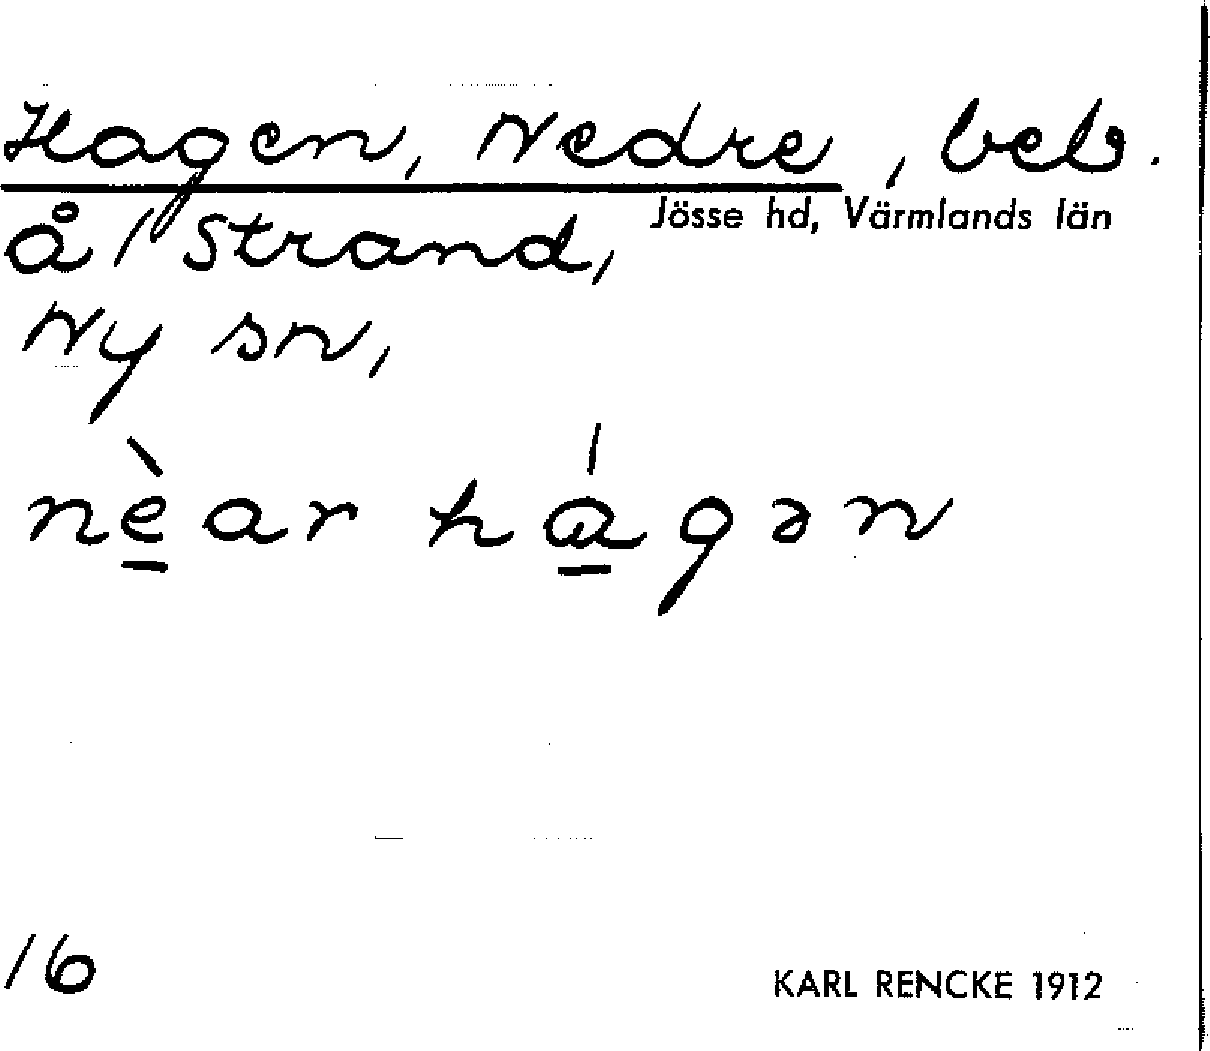 Hagen, Nedre, beb.
Jösse hd, Värmlands län
å / Strand,
Ny sn,
nèar hágən
16
KARL RENCKE 1912